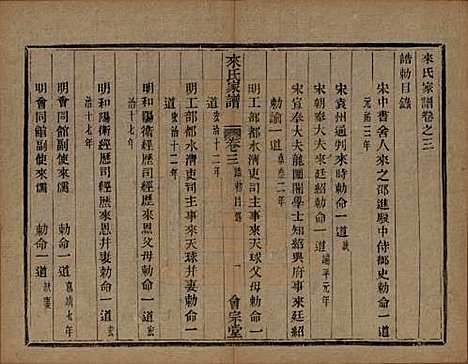 來氏家譜卷之三
誥勅目錄
宋中書舍人來之邵進殿中侍御史勅命一道
元祐三年
宋袁州通判來時勅命一道
宋朝奉大夫來廷紹勅命一道
宋宣奉大夫龍圖閣學士知紹興府事來廷紹
勅諭一道 嘉泰二年
明工部都水清吏司主事來天球父母勅命一
道 弘治十二年
來氏家譜 卷三 誥勅目錄 一 會宗堂
明工部都水清吏司主事來天球幷妻勅命一
道 弘治十二年
明和陽衛經歷司經歷來恩父母勅命一道 弘
治十七年
明和陽衛經歷司經歷來恩幷妻勅命一道 弘
治十七年
明會同館副使來儒 勅命一道 嘉靖七年
明會同館副使來儒 勅命一道